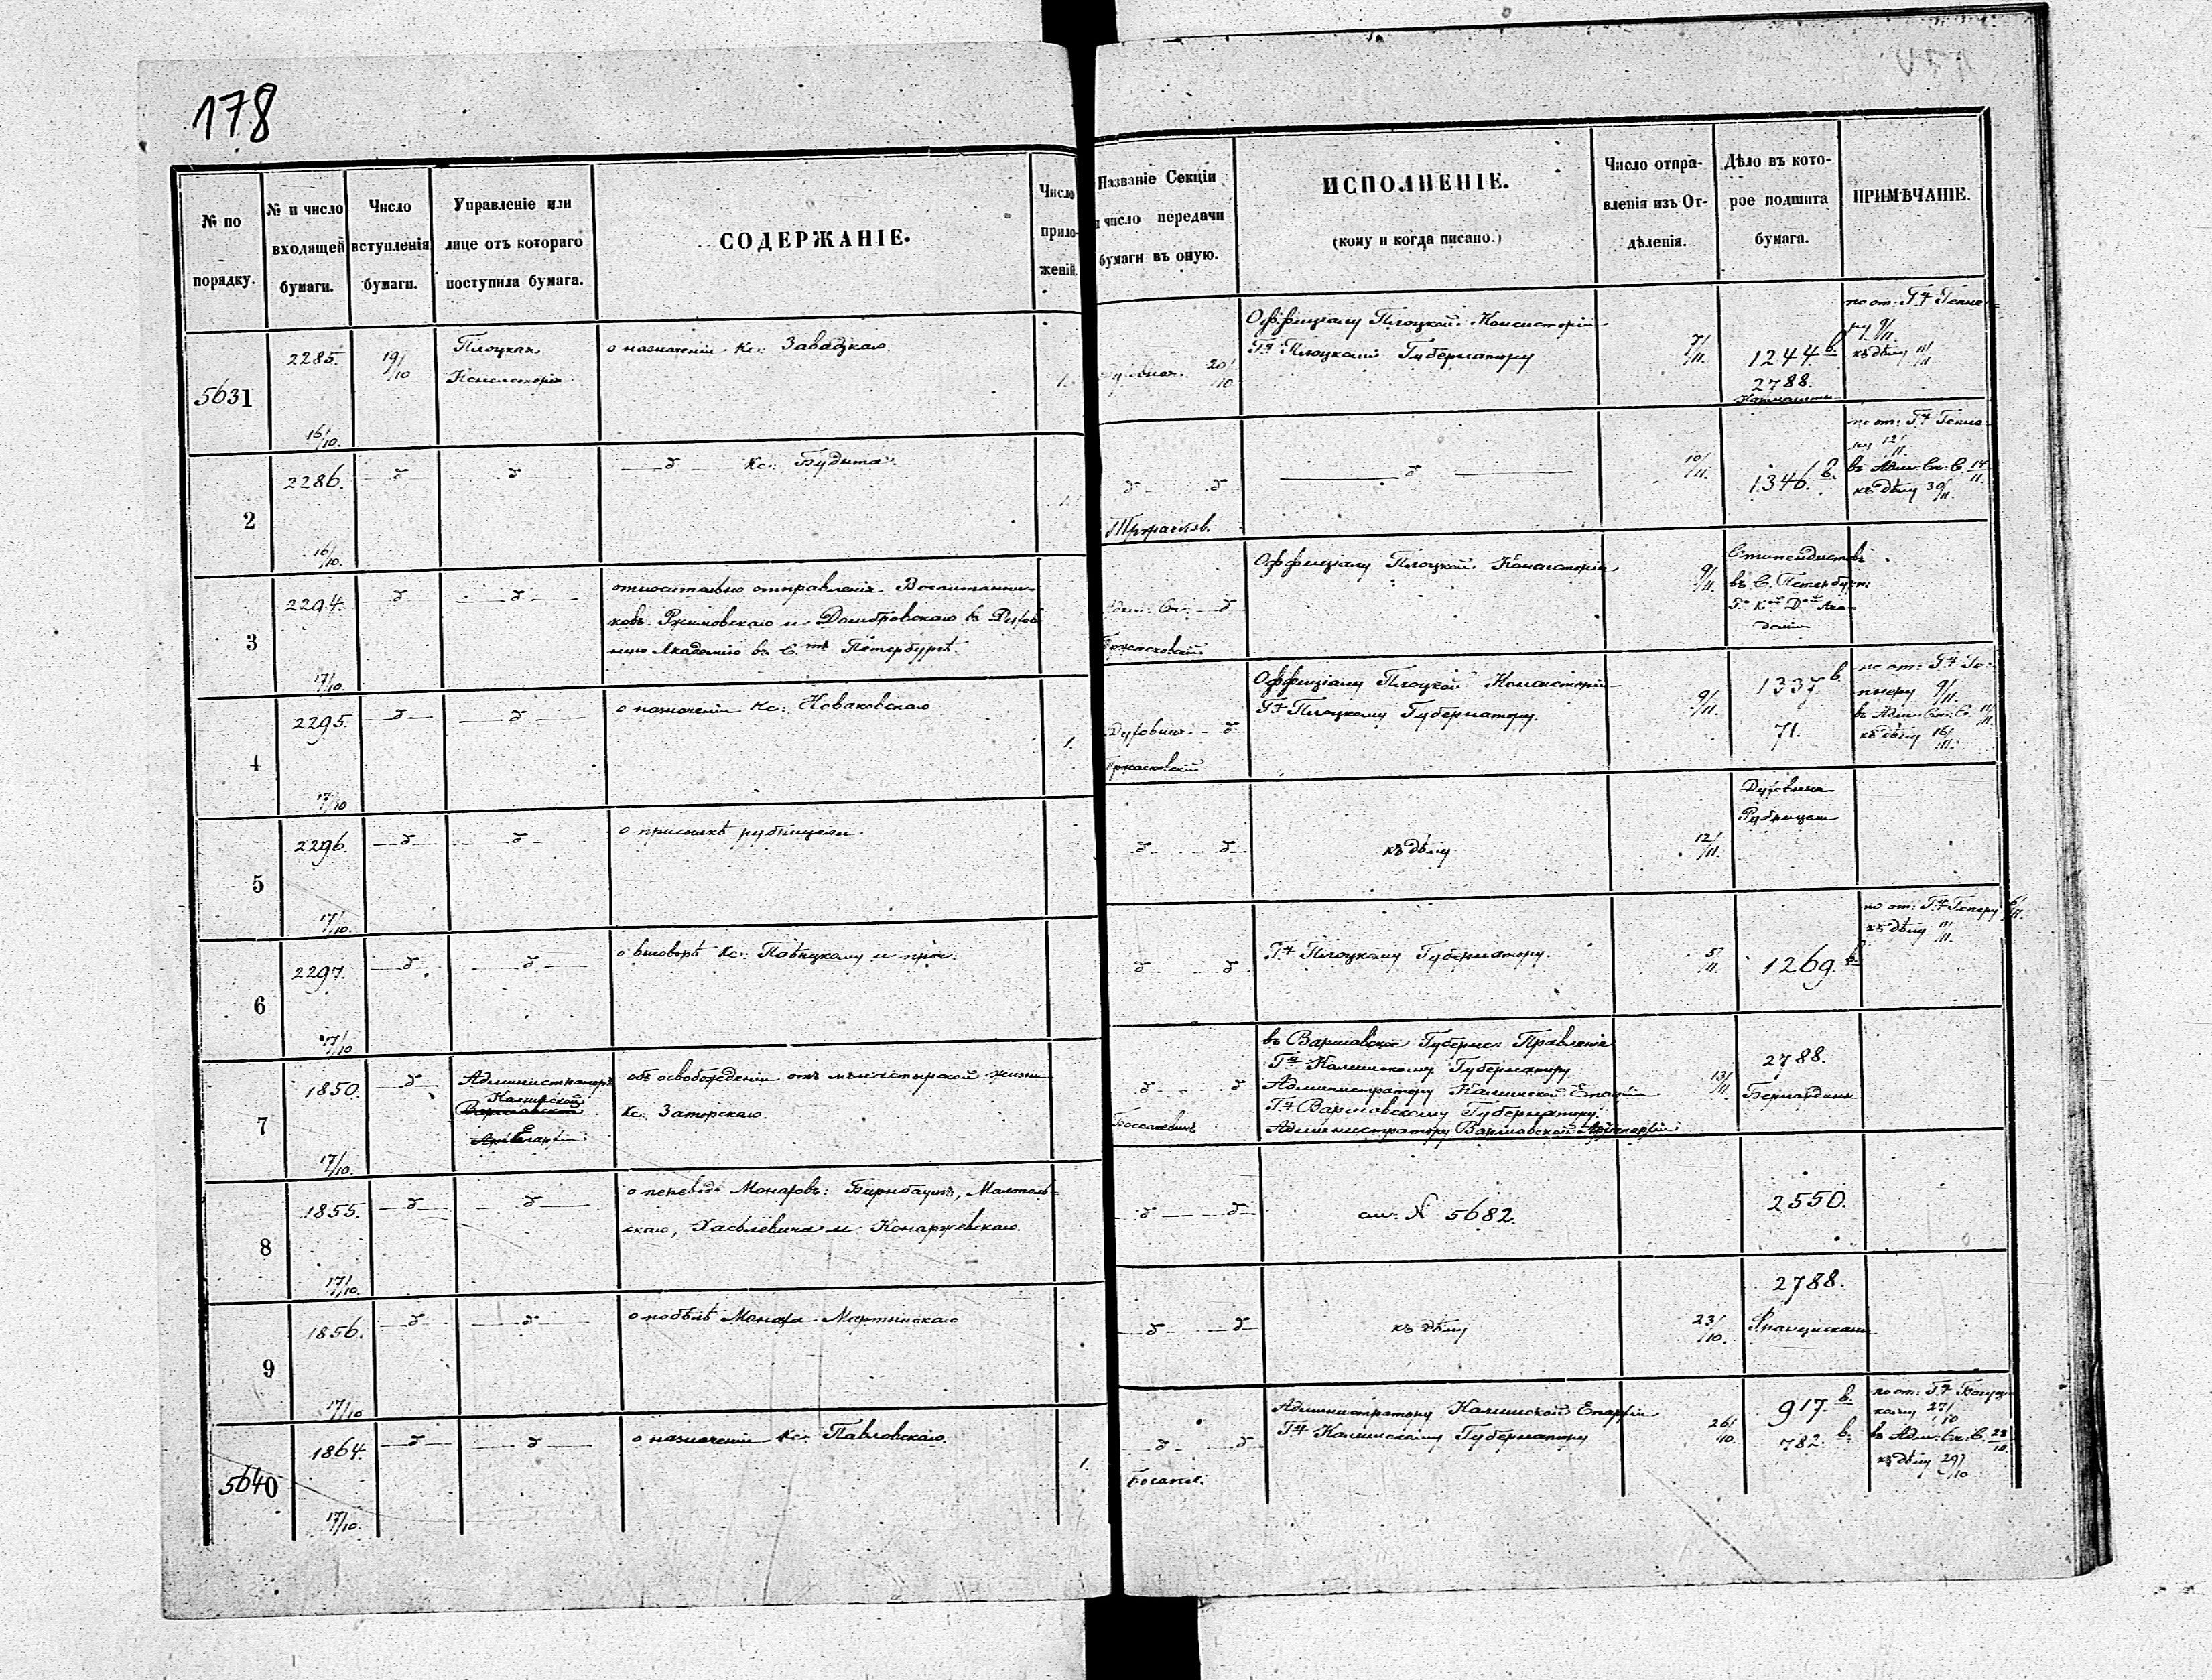 178
№ по порядку.
№ и число входящей бумаги.
Число вступленія бумаги.
Управленіе или лице отъ котораго поступила бумага.
СОДЕРЖАНІЕ.
Число приложеній.
Названіе Секціи и число передачи бумаги въ оную.
ИСПОЛНЕНІЕ.
(кому и когда писано.)
Число отправленія изъ Отдѣленія.
Дѣло въ которое подшита бумага.
ПРИМѢЧАНІЕ.
5631
2285.
16/10.
19/10
Плоцкая
Консисторія
о назначеніи Кс: Завадзкаго
1.
20/10
Оффиціалу Плоцкой Консисторіи
Г. Плоцкому Губернатору
7/11.
1244 в.
2788.
9/11.
къ дѣлу 11/11
2
2286.
16/10.
Кс: Будыта.
1.
10/11.
1346. в.
12/11.
въ Адм: Ск: С. 14/11.
къ дѣлу 30/11.
3
2294.
17/10.
относительно отправленія Воспитанни-
ковъ Ржимовскаго и Домбровскаго въ Духов
ную Академію въ С. Петербургѣ.
Оффиціалу Плоцкой Консисторіи
9/11.
Стипендистовъ
въ С. Петербург:
4
2295.
17/10
о назначеніи Кс: Новаковскаго
1.
Духовная
Оффиціалу Плоцкой Консисторіи
Г. Плоцкому Губернатору.
9/11.
1337 в.
71.
9/11.
въ Адм: Ск: С. 11/11.
къ дѣлу 16/11.
5
2296.
17/10.
о присылкѣ рубрицели
къ дѣлу
12/11.
Духовныя
6
2297.
17/10
о выговорѣ Кс:
и проч:
Г. Плоцкому Губернатору.
5/11.
1269. в.
6/11.
къ дѣлу 11/11.
7
1850.
17/10.
Администраторъ
Калишской
Варшавской
объ освобожденіи отъ монастырской жизни
Кс: Заторскаго.
въ Варшавское Губерн: Правленіе
Г. Калишскому Губернатору
Администратору Калишской Епархіи
Г. Варшавскому Губернатору
Администратору Варшавской Архіепархіи
13/11.
2788.
Бернардины
8
1855.
17/10.
о переводѣ Монаховъ: Бирнбаумъ, Малополь-
скаго,
и Конаржевскаго.
см: N 5682.
2550.
9
1856.
17/10
о побѣгѣ Монаха Мартынскаго
къ дѣлу
23/10.
2788.
Францискане
5640
1864.
17/10.
о назначеніи Кс: Павловскаго.
1.
Администратору Калишской Епархіи
Г. Калишскому Губернатору
26/10.
917. в.
782. в.
27/10
въ Адм: Ск: С. 28/10.
къ дѣлу 29/10